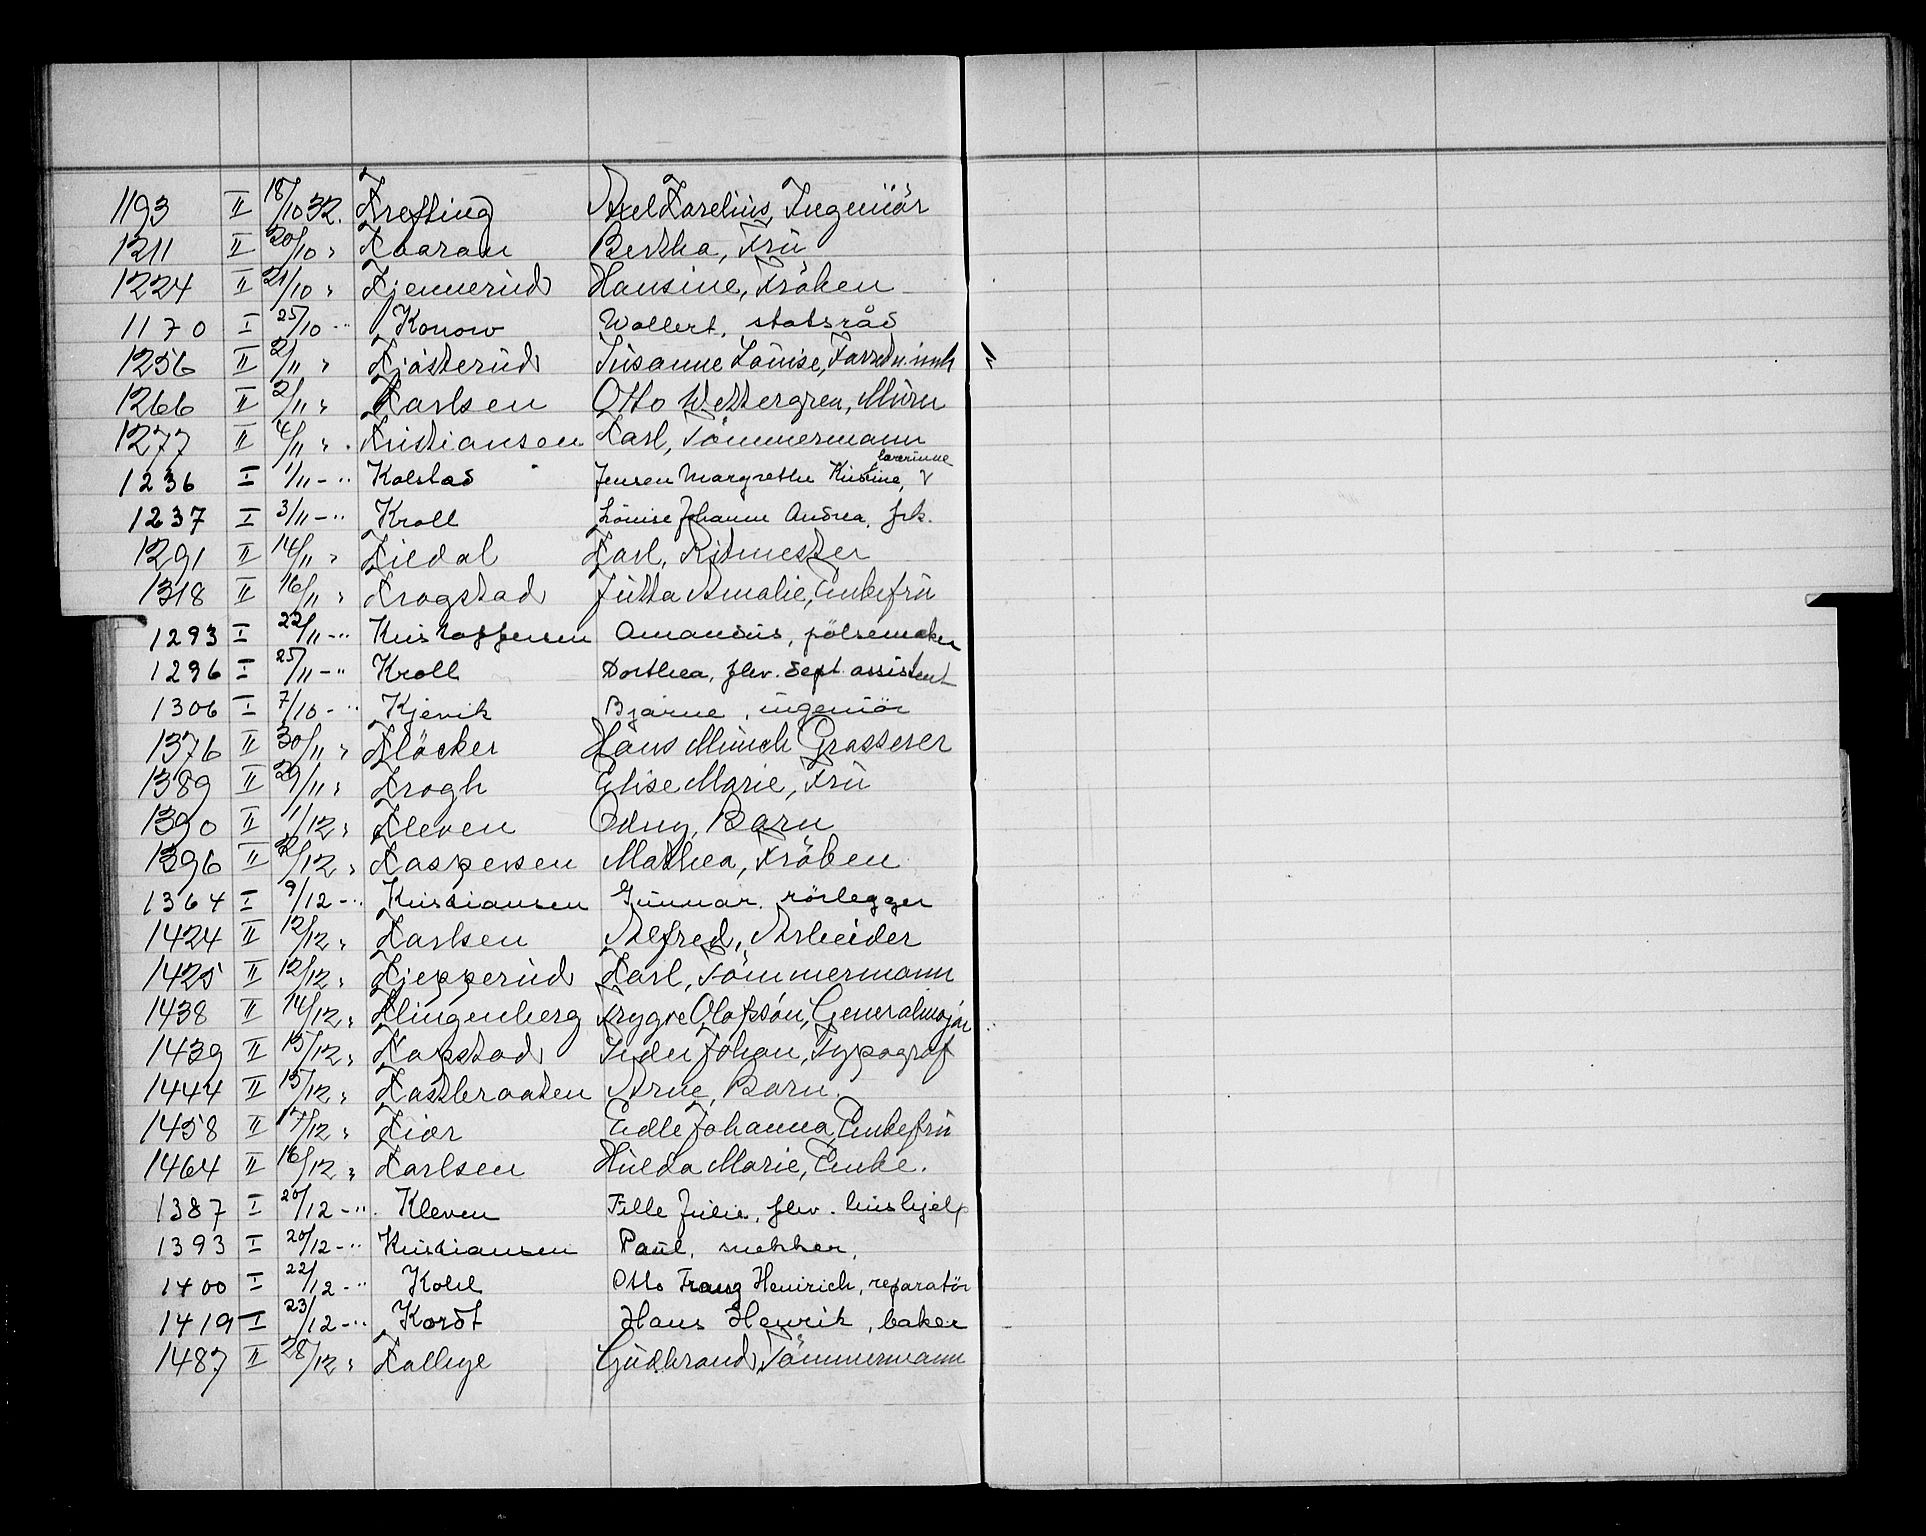 1193 II 18/10 32. Krefting Axel Karelius, Ingeniör
1211 II 20/10 " Kaaran Bertha, Frü
1224 II 21/10 " Kjennerud Hansine, Fröken
1170 I 25/10 -" Konow Wollert, statsråd
1256 II 2/11 " Kjösterud Susanne Louise,
1266 II 2/11 " Karlsen Otto Wettergren, Murm
1277 II 4/11 " Kristiansen Karl, Tömmermann
1236 I 1/11 -" Kolstad Jensen Margrethe Kristine, lærerinne
1237 I 3/11 -" Kroll Louise Johanne Andrea, frk.
1291 II 14/11 " Kildal Karl, Ritmester
1318 II 16/11 " Krogstad Jutta Amalie, Enkefrü
1293 I 22/11 -" Kristoffersen Amandus, pölsemaker
1296 I 25/11 -" Kroll Dorthea, fhv. dept. assistent
1306 I 7/10 -" Kjevik Bjarne, ingeniör
1376 II 30/11 " Klöcker Hans Münch Grosserer
1389 II 29/11 " Krogh Elise Marie, Frü
1390 II 1/12 " Kleven Odny, Barn
1396 II /12 " Kaspersen Mathea, Fröken
1364 I 9/12 -" Kristiansen Gunnar, rörlegger
1424 II 12/12 " Karlsen Alfred, Arbeider
1425 II 12/12 " Kjepperud Karl, Tömmermann
1438 II 14/12 " Klingenberg Trygve Olafsön, Generalmajor
1439 II 15/12 " Kapstad Peder Johan, Typograf
1444 II 15/12 " Kastbraaten Arne, Barn.
1458 II 17/12 " Kiær Edle Johanna, Enkefrü
1464 II 16/12 " Karlsen Hulda Marie, Enke.
1387 I 20/12 -" Kleven Tille Julie, fhv. hushjelp
1393 I 20/12 -" Kristiansen Paul, snekker,
1400 I 22/12 -" Kohl Otto Franz Heinrich, reparatör
1419 I 23/12 -" Kordt Hans Henrik, baker
1487 II 28/12 " Kallhye Gudbrand, Tömmermann